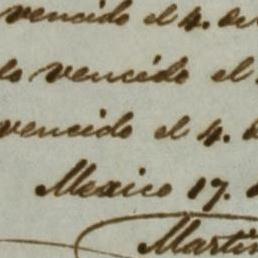 vencido el 4. de
do vencido el
vencido el 4. de
Mexico 17. d
Martin